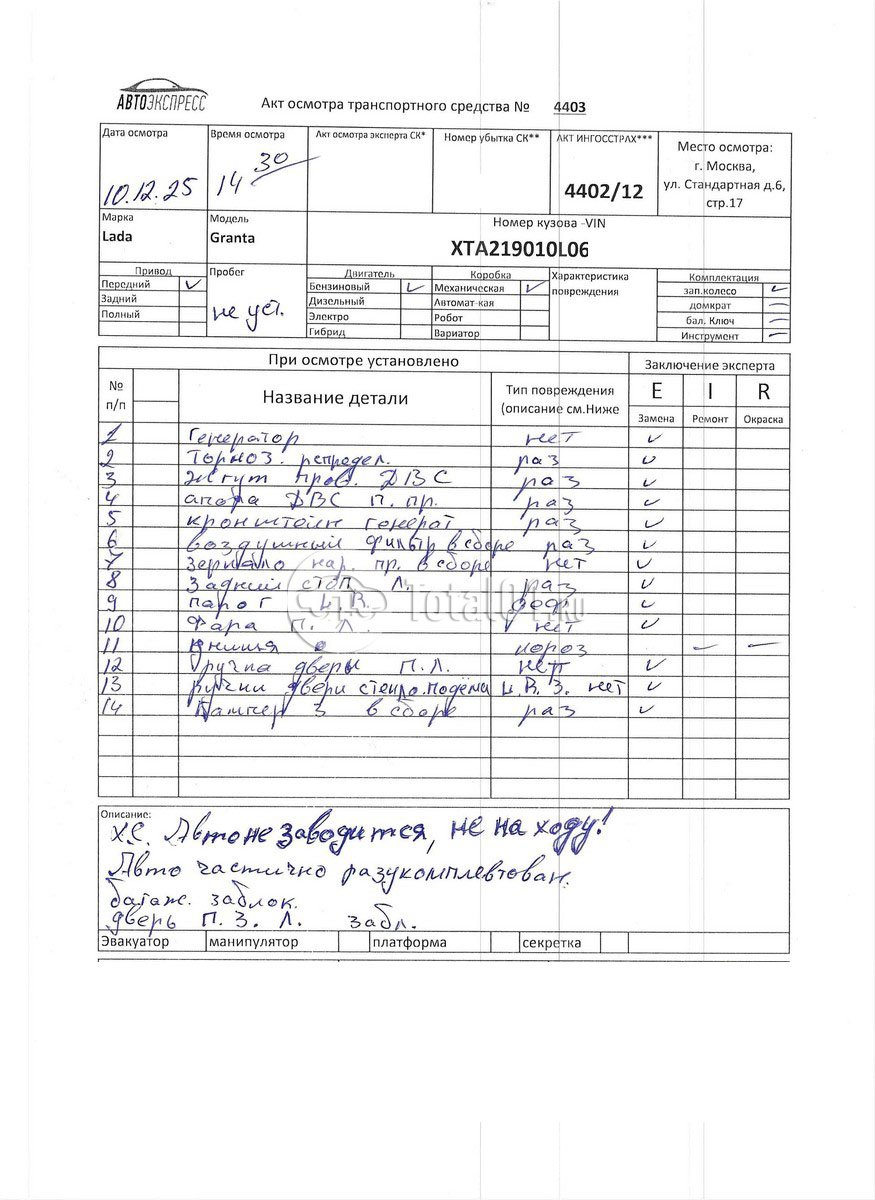 АВТОЭКСПРЕСС
Акт осмотра транспортного средства № 4403
Дата осмотра
10.12.25
Время осмотра
14 30
Акт осмотра эксперта СК*
Номер убытка СК**
АКТ ИНГОССТРАХ***
4402/12
Место осмотра:
г. Москва,
ул. Стандартная д.6,
стр.17
Марка
Lada
Модель
Granta
Номер кузова -VIN
XTA219010L06
Привод
Передний
Задний
Полный
Пробег
не уст.
Двигатель
Бензиновый
Дизельный
Электро
Гибрид
Коробка
Механическая
Автомат-кая
Робот
Вариатор
Характеристика
повреждения
Комплектация
зап.колесо
домкрат
бал. Ключ
Инструмент
При осмотре установлено
Заключение эксперта
№
п/п
Название детали
Тип повреждения
(описание см.Ниже
E I R
Замена Ремонт Окраска
1 Генератор нет
2 Тормоз. распредел. раз
3 Жгут пров. ДВС раз
4 апора ДВС п. пр. раз
5 кронштейн генерат. раз
6 воздушный фильтр в сборе раз
7 Зеркало нар. пр. в сборе нет
8 Задний стоп Л. раз
9 парог деф
10 Фара П. Л. нет
11 днища
12 Ручка дверы П.Л. нет
13 ручки двери стекло.подёма нет
14 Бампер З в сборе раз
Total01.ru
Описание:
Х.С. Авто не заводится, не на ходу!
Авто частично разукомплевтован.
багаж. заблок.
дверь П. З. Л. забл.
Эвакуатор манипулятор платформа секретка